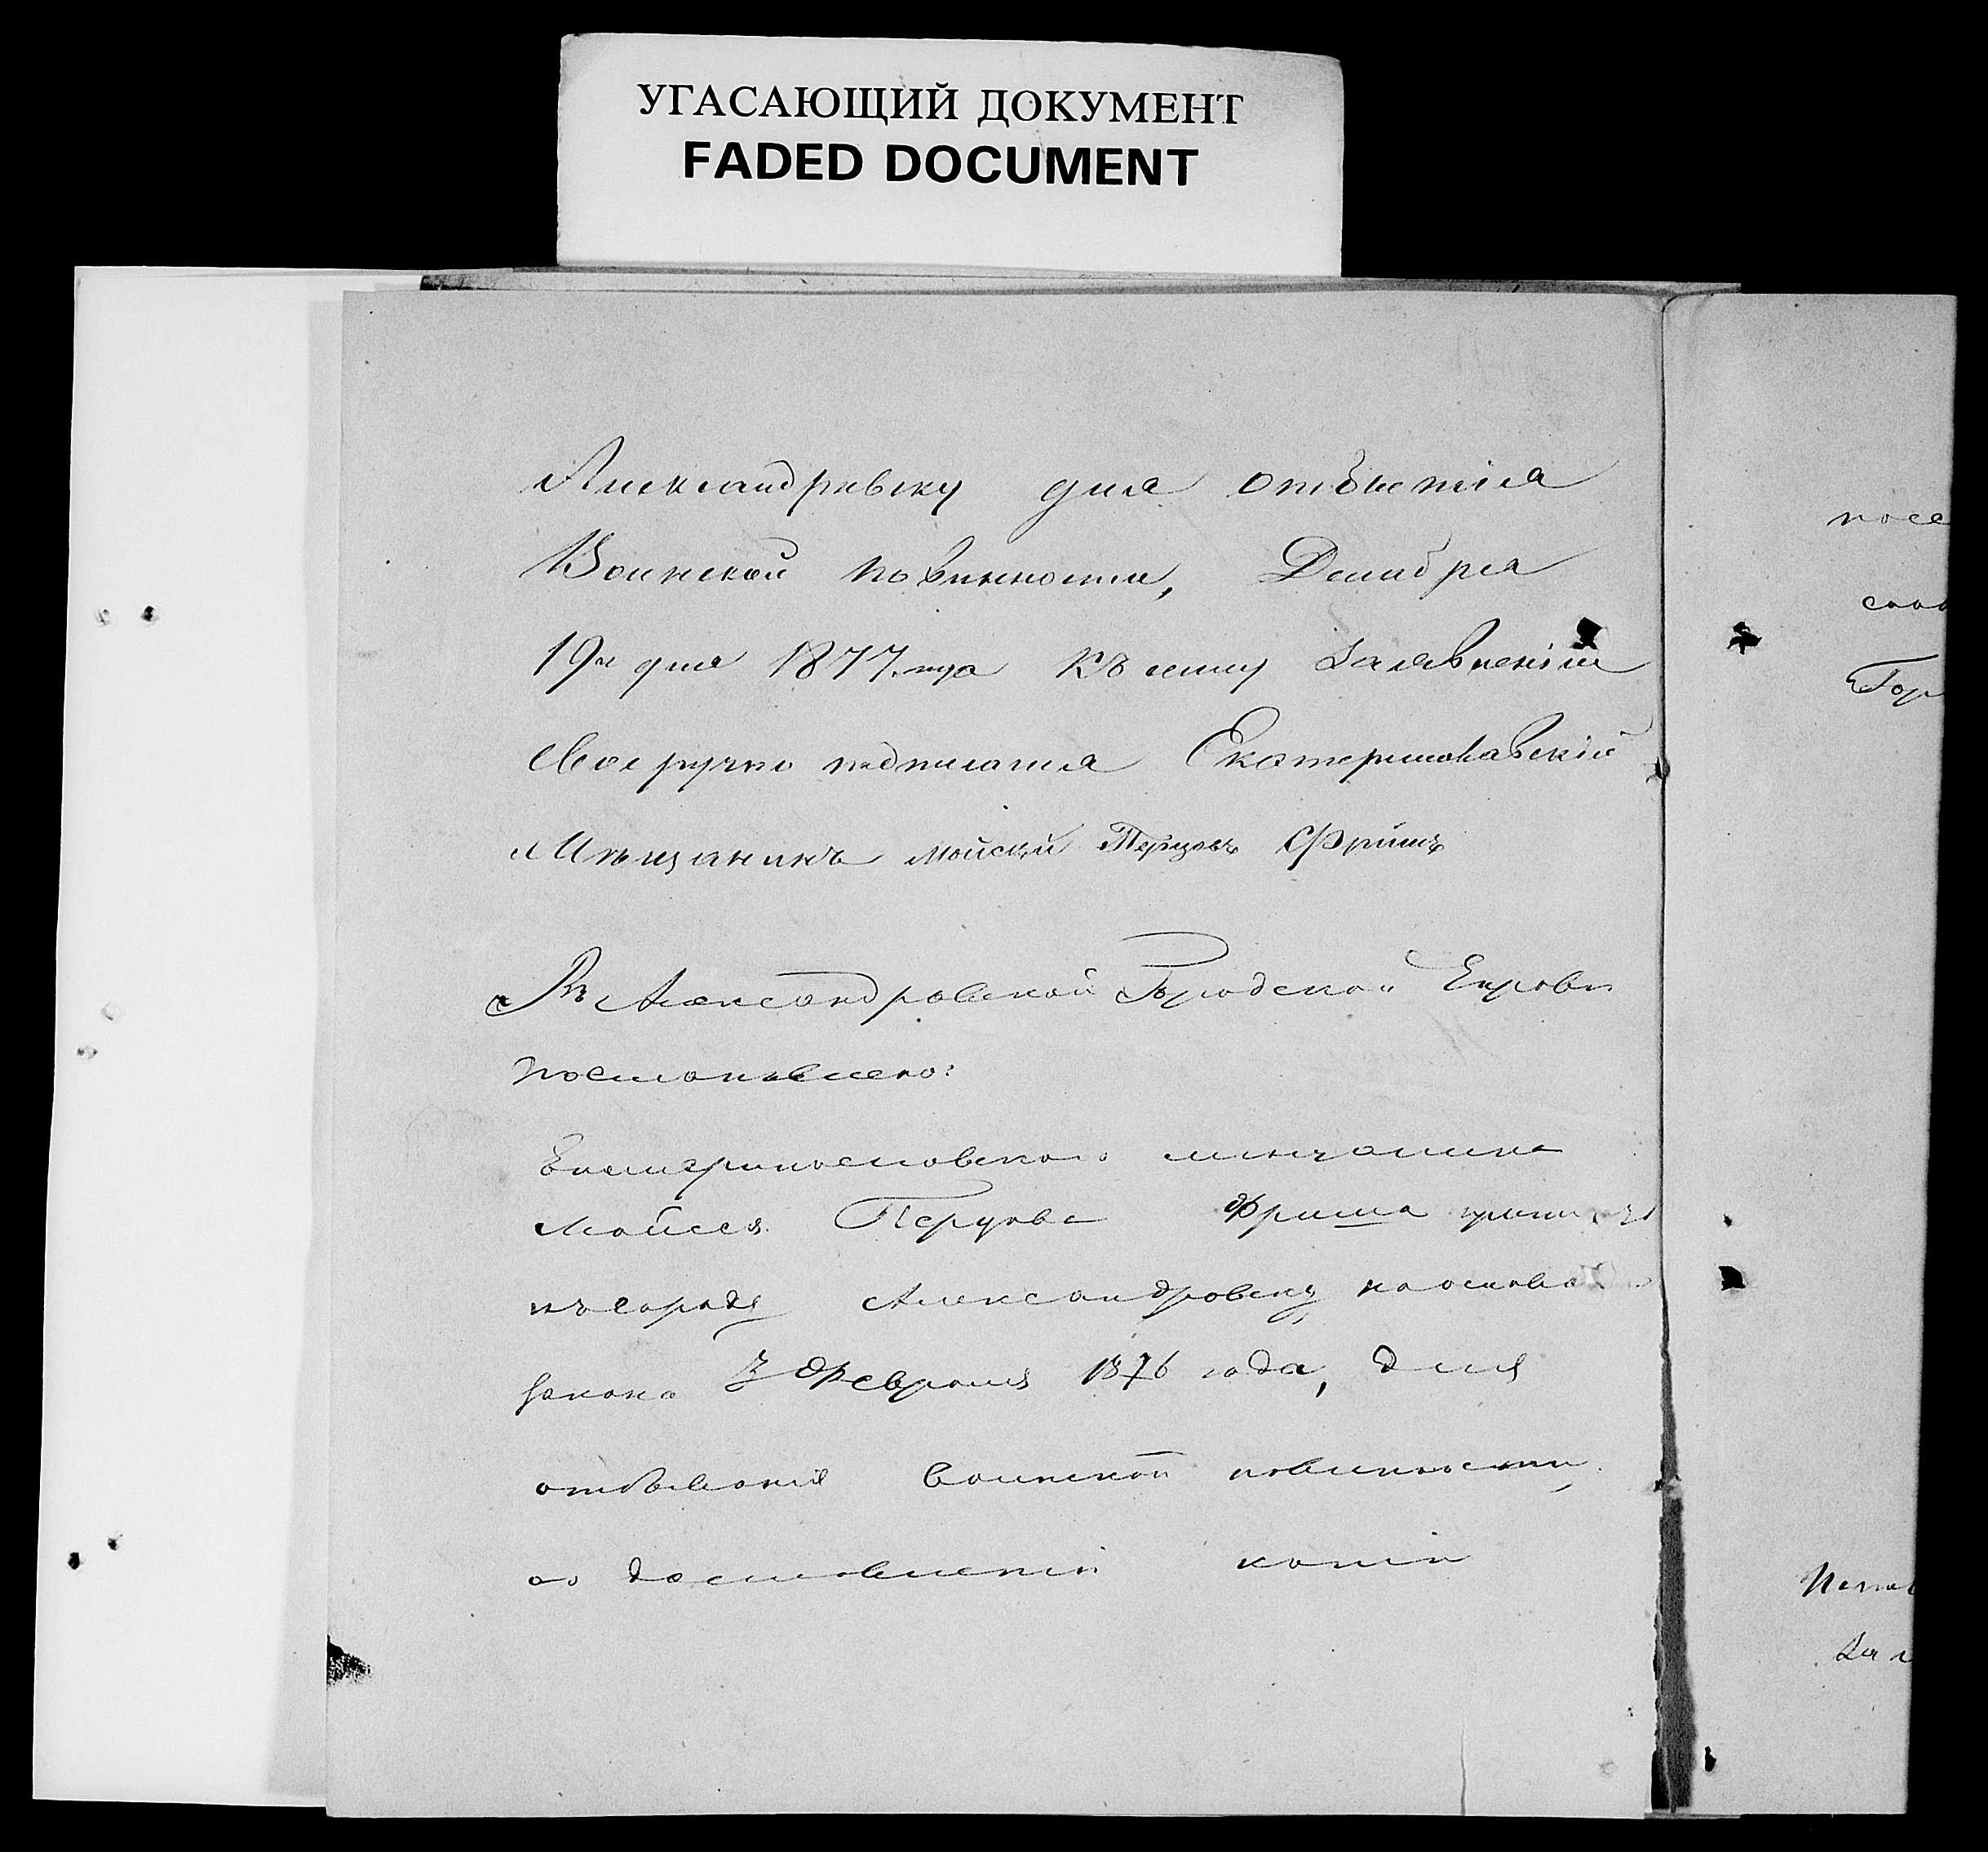 УГАСАЮЩИЙ ДОКУМЕНТ
FADED DOCUMENT
Александровску для отбытія
Воинской повинности, Декабря
19го дня 1877 года Къ сему заявленію
своеручно подписался Екатеринославскій
Мѣщанинъ Мойсей Перцовъ Фришъ
Въ Александровской Городской Управѣ
постановлено:
Екатеринославскаго мѣщанина
Мойсея Перцова Фриша
къ городу Александровску, на основа
закона 3 Февраля 1876 года, для
отбыванія воинской повинности,
о доставленіи копіи
посе
Гор